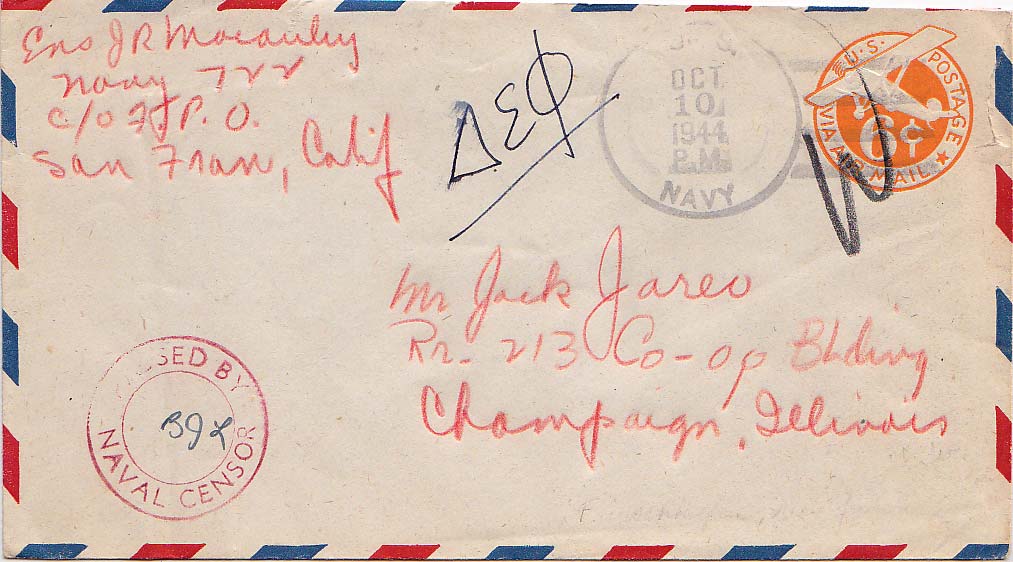 Ens JR Macauley
Navy 722
c/o F.P.O.
San Fran, Calif
ΔΣΦ
OCT
10
1944
P.M.
NAVY
U.S. POSTAGE
6¢
VIA AIR MAIL
Mr Jack Jareo
Rr- 213 Co-op Bldivg
Champaign, Illinois
PASSED BY
NAVAL CENSOR